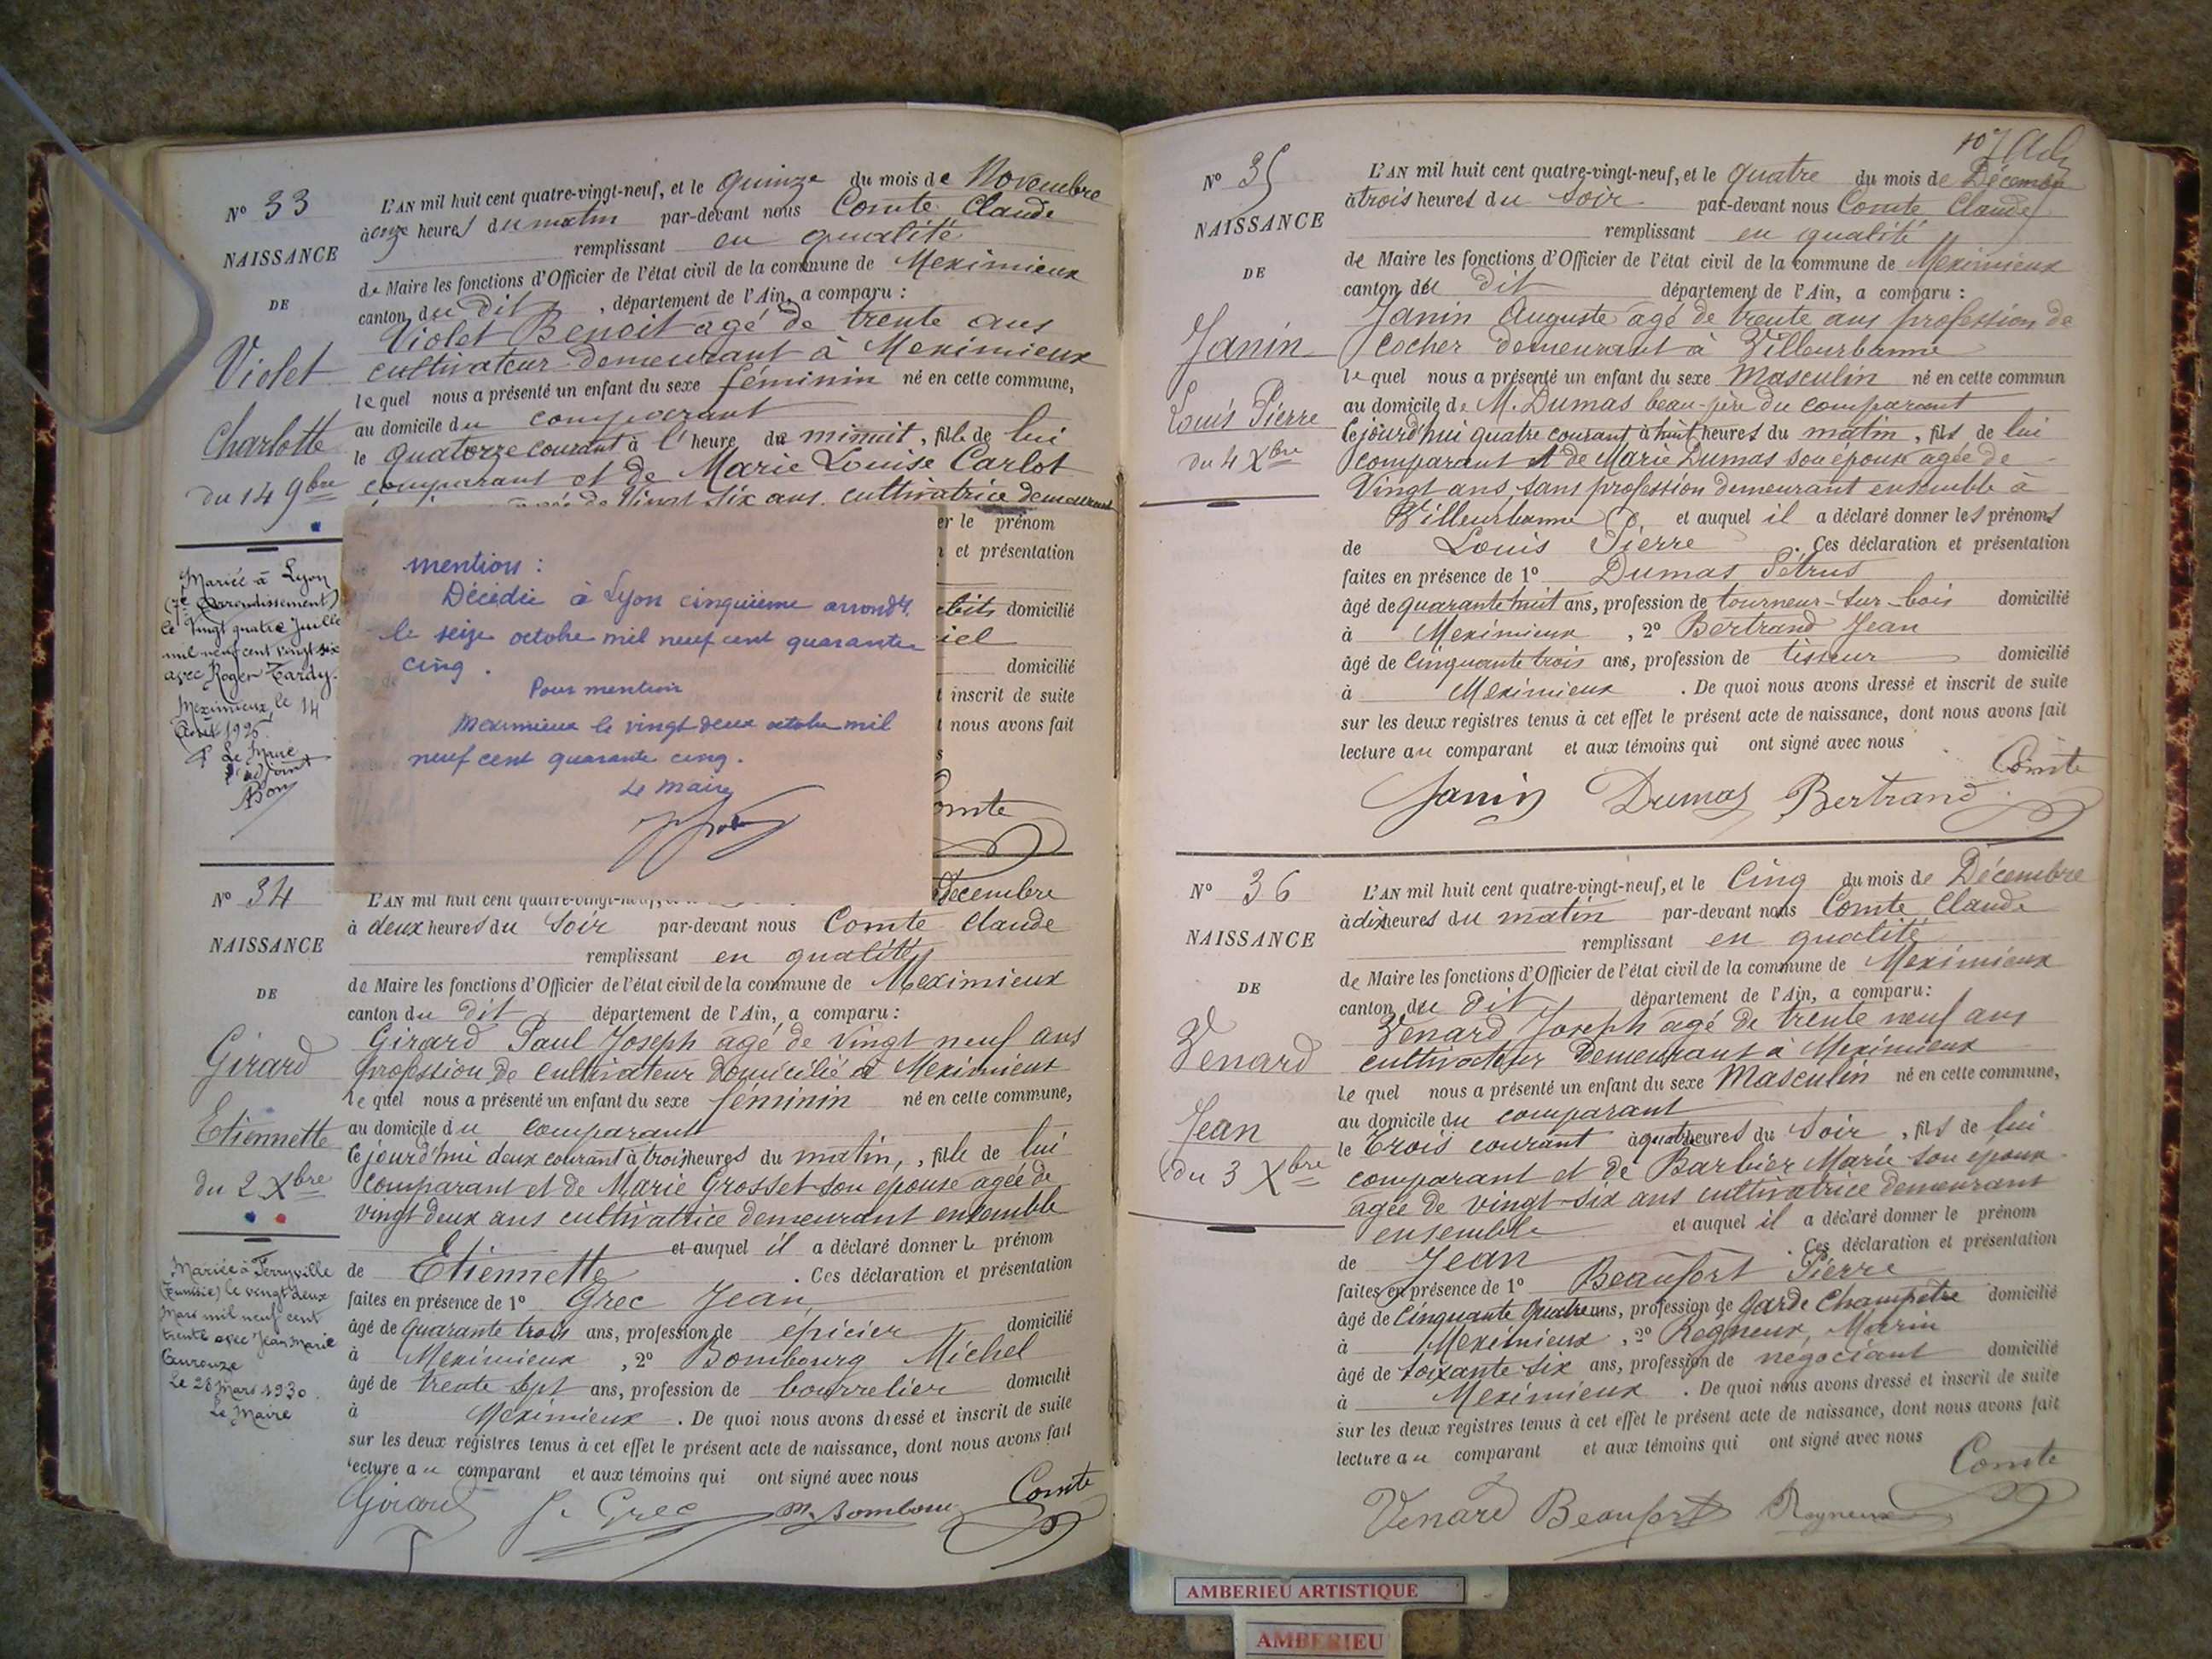 N° 33
NAISSANCE
DE
Violet
Charlotte
du 14 9bre
L'AN mil huit cent quatre-vingt-neuf, et le quinze du mois de Novembre
à onze heures du matin par-devant nous Comte Claude
remplissant en qualité
de Maire les fonctions d'Officier de l'état civil de la commune de Meximieux
canton du dit, département de l'Ain, a comparu :
Violet Benoit agé de trente ans
cultivateur demeurant à Meximieux
lequel nous a présenté un enfant du sexe féminin né en cette commune,
au domicile du comparant
le quatorze courant à l'heure de minuit, fille de lui
comparant et de Marie Louise Carlot
agée de vingt six ans cultivatrice demeurant
er le prénom
et présentation
domicilié
iel
domicilié
inscrit de suite
nous avons fait
Comte
Mariée à Lyon
(7e arrondissement)
le vingt quatre Juillet
mil neuf cent vingt six
avec Roger Tardy.
Meximieux, le 14
Août 1926
P. Le Maire
l'adjoint
mention :
Décédée à Lyon cinquième arrondt.
le seize octobre mil neuf cent quarante
cinq.
Pour mention
Meximieux le vingt deux octobre mil
neuf cent quarante cinq.
Le Maire
N° 34
NAISSANCE
DE
Girard
Etiennette
du 2 Xbre
L'AN mil huit cent quatre-vingt-neuf, Décembre
à deux heures du soir par-devant nous Comte Claude
remplissant en qualité
de Maire les fonctions d'Officier de l'état civil de la commune de Meximieux
canton du dit département de l'Ain, a comparu :
Girard Paul Joseph agé de vingt neuf ans
profession de cultivateur domicilié à Meximieux
lequel nous a présenté un enfant du sexe féminin né en cette commune,
au domicile du comparant
cejourd'hui deux courant à trois heures du matin, fille de lui
comparant et de Marie Grosset son épouse agée de
vingt deux ans cultivatrice demeurant ensemble
et auquel il a déclaré donner le prénom
de Etiennette. Ces déclaration et présentation
faites en présence de 1° Grec Jean
âgé de quarante trois ans, profession de epicier domicilié
à Meximieux, 2° Bombourg Michel
âgé de trente sept ans, profession de bourrelier domicilié
à Meximieux. De quoi nous avons dressé et inscrit de suite
sur les deux registres tenus à cet effet le présent acte de naissance, dont nous avons fait
lecture au comparant et aux témoins qui ont signé avec nous
Girard J. Grec M. Bombourg Comte
Mariée à Ferryville
(Tunisie) le vingt deux
Mars mil neuf cent
trente avec Jean Marie
Le 28 Mars 1930.
Le Maire
107
N° 35
NAISSANCE
DE
Janin
Louis Pierre
du 4 Xbre
L'AN mil huit cent quatre-vingt-neuf, et le quatre du mois de Décembre
à trois heures du soir par-devant nous Comte Claude
remplissant en qualité
de Maire les fonctions d'Officier de l'état civil de la commune de Meximieux
canton du dit département de l'Ain, a comparu :
Janin Auguste agé de trente ans profession de
cocher demeurant à Villeurbanne
lequel nous a présenté un enfant du sexe Masculin né en cette commun
au domicile de M. Dumas beau-père du comparant
cejourd'hui quatre courant à huit heures du matin, fils de lui
comparant et de Marie Dumas son épouse agée de
vingt ans sans profession demeurant ensemble à
Villeurbanne et auquel il a déclaré donner les prénoms
de Louis Pierre. Ces déclaration et présentation
faites en présence de 1° Dumas Pétrus
âgé de quarante huit ans, profession de tourneur-sur-bois domicilié
à Meximieux, 2° Bertrand Jean
âgé de cinquante trois ans, profession de tisseur domicilié
à Meximieux. De quoi nous avons dressé et inscrit de suite
sur les deux registres tenus à cet effet le présent acte de naissance, dont nous avons fait
lecture au comparant et aux témoins qui ont signé avec nous
Janin Dumas Bertrand Comte
N° 36
NAISSANCE
DE
Venard
Jean
du 3 Xbre
L'AN mil huit cent quatre-vingt-neuf, et le Cinq du mois de Décembre
à dix heures du matin par-devant nous Comte Claude
remplissant en qualité
de Maire les fonctions d'Officier de l'état civil de la commune de Meximieux
canton du dit département de l'Ain, a comparu:
Venard Joseph agé de trente neuf ans
cultivateur demeurant à Meximieux
lequel nous a présenté un enfant du sexe Masculin né en cette commune,
au domicile du comparant
le trois courant à quatre heures du soir, fils de lui
comparant et de Barbier Marie son épouse
agée de vingt-six ans cultivatrice demeurant
ensemble et auquel il a déclaré donner le prénom
de Jean. Ces déclaration et présentation
faites en présence de 1° Beaufort Pierre
âgé de cinquante quatre ans, profession de garde champêtre domicilié
à Meximieux, 2° Regneux, Marin
âgé de soixante six ans, profession de négociant domicilié
à Meximieux. De quoi nous avons dressé et inscrit de suite
sur les deux registres tenus à cet effet le présent acte de naissance, dont nous avons fait
lecture au comparant et aux témoins qui ont signé avec nous
Venard Beaufort Regneux Comte
AMBERIEU ARTISTIQUE
AMBERIEU